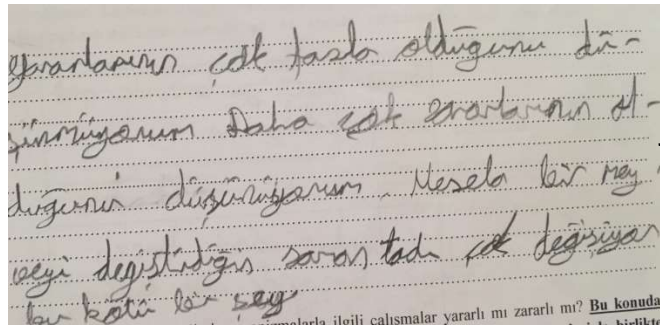 yararlarının çok fazla olduğunu dü-
şünmüyorum Daha çok zararlarının ol-
duğunu düşünüyorum. Mesela bir mey
veyi değiştirdiğin zaman tadı çok değişiyor
bu kötü bir şey
ilgili çalışmalar yararlı mı zararlı mı? Bu konuda
birlikte